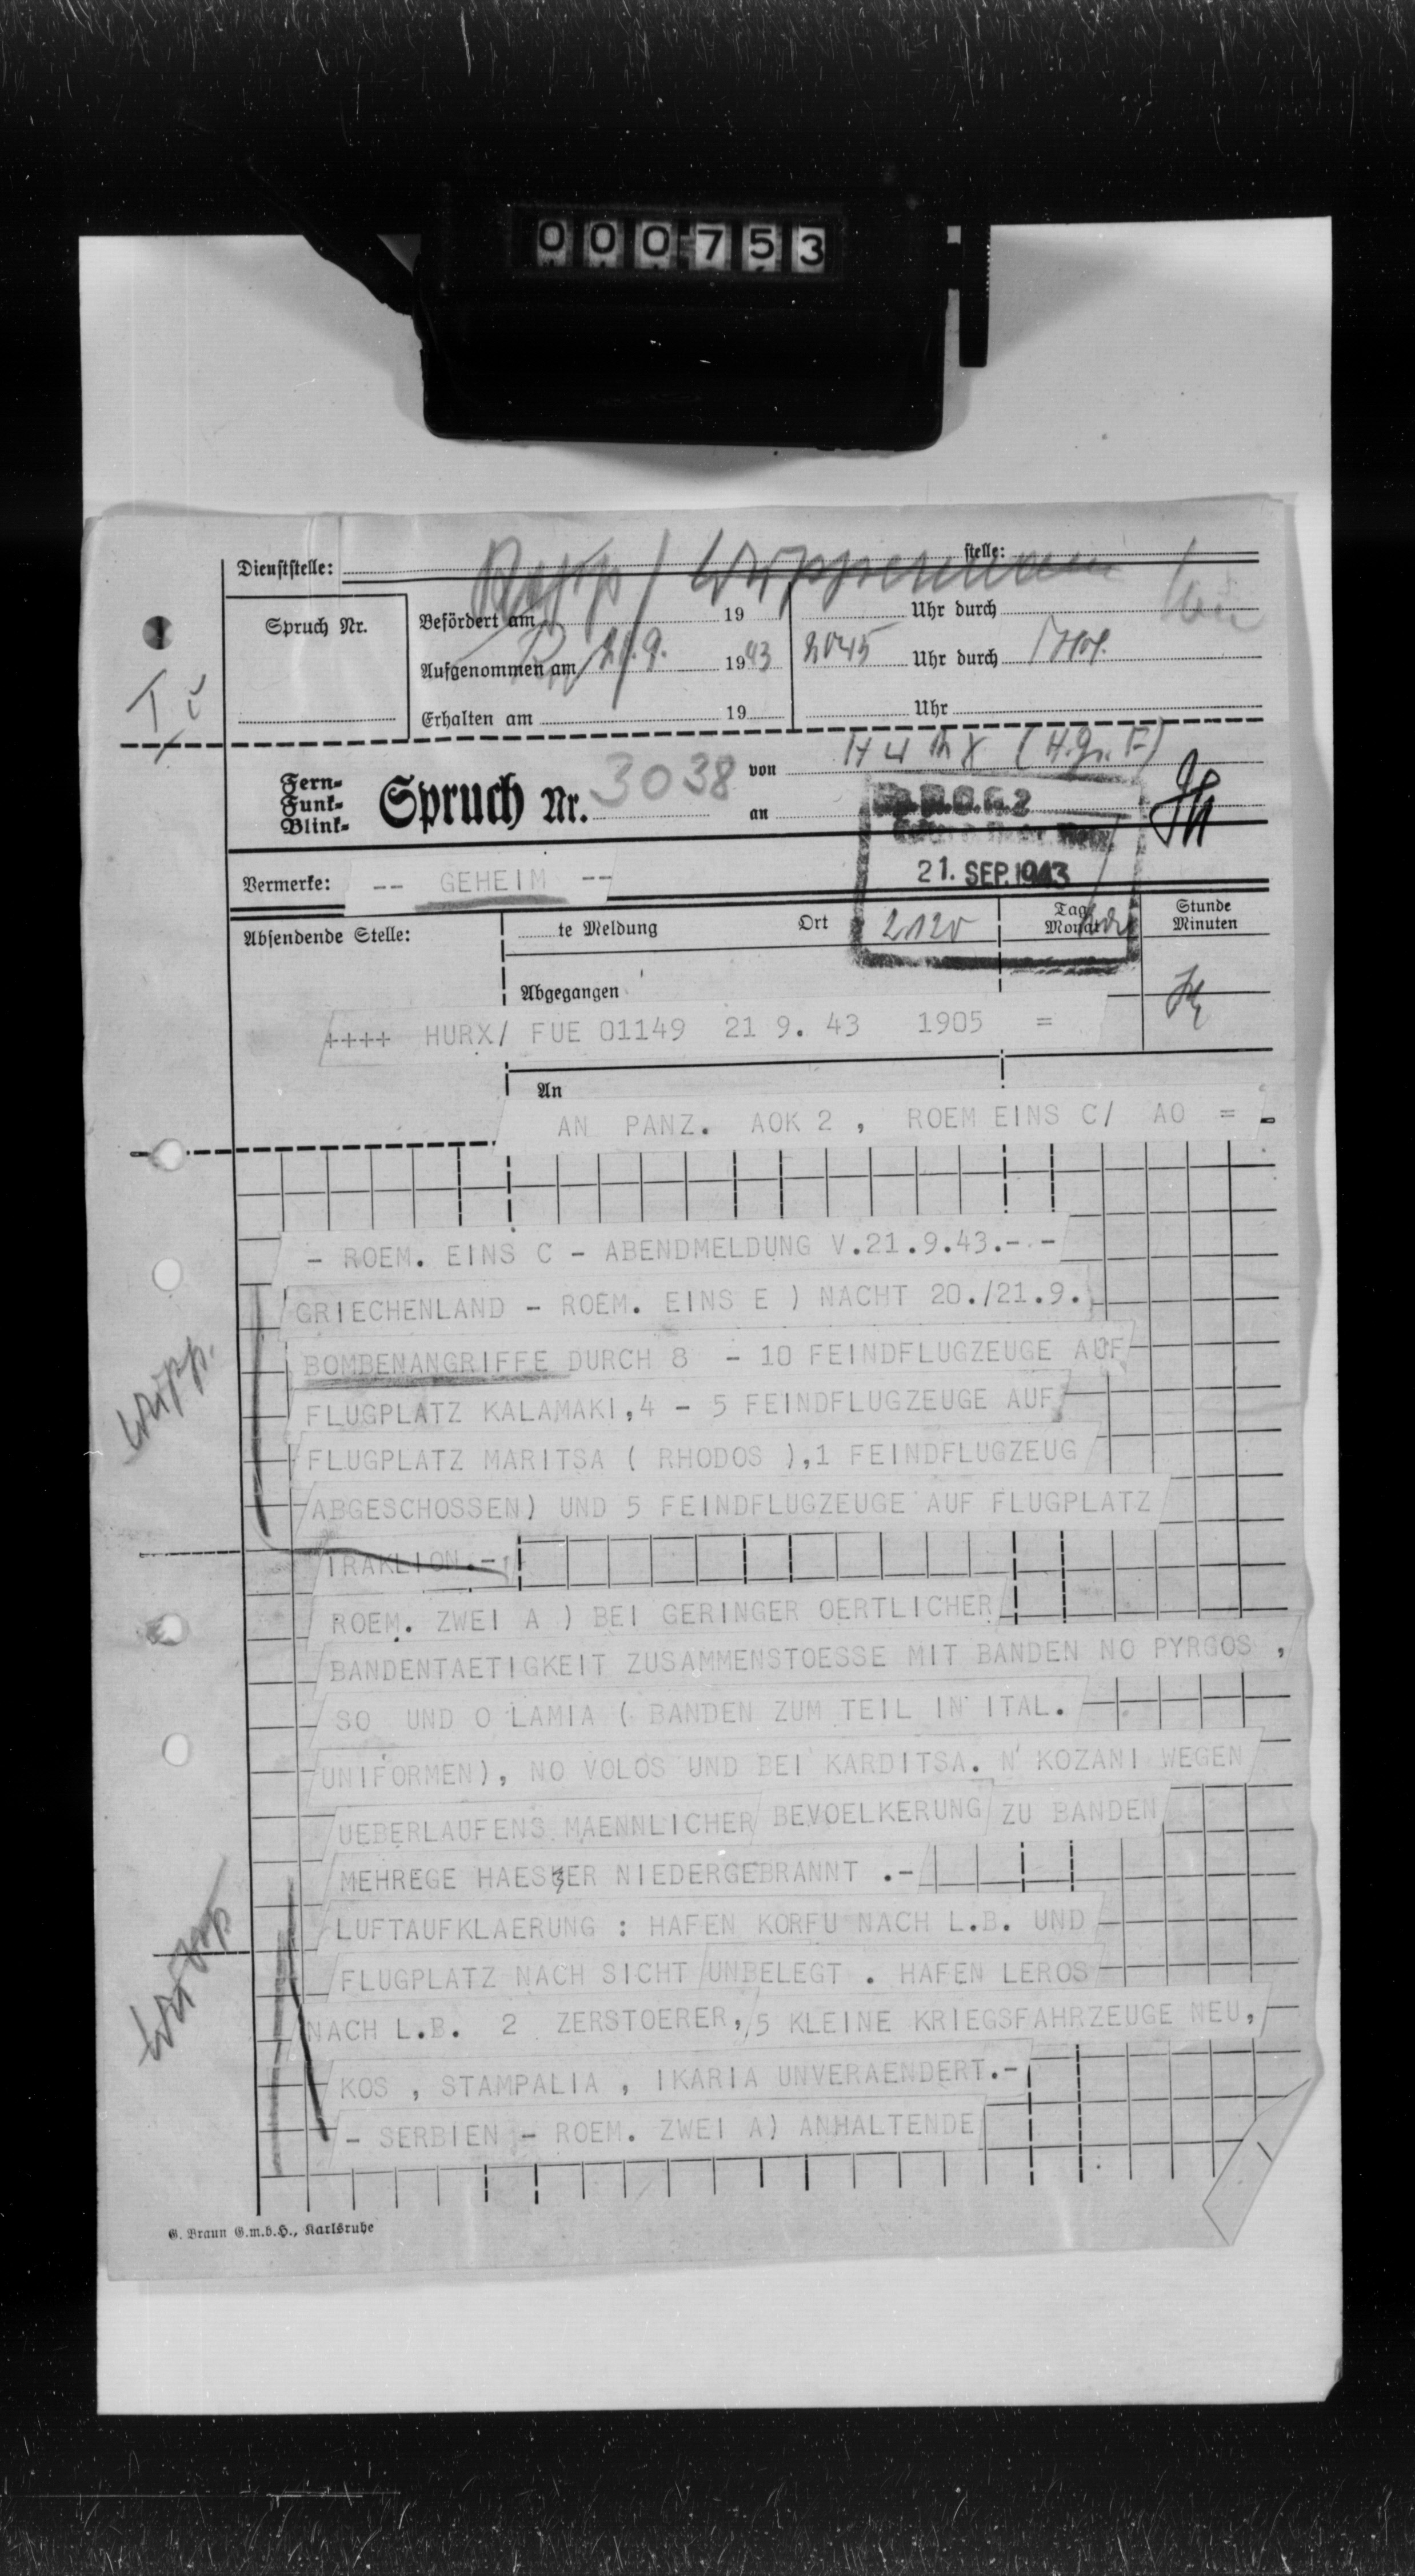 000753
Dienststelle: stelle:
Spruch Nr.
Befördert am 19 Uhr durch
Aufgenommen am 21.9. 1943 2045 Uhr durch
Erhalten am 19 Uhr
Fern-
Funk-
Blink-
Spruch Nr. 3038 von (H.Gr. F)
an
21. SEP. 1943
Vermerke: -- GEHEIM --
Absendende Stelle: te Meldung Ort 2120 Tag Monat Stunde Minuten
Abgegangen
++++ HURX/ FUE 01149 21 9. 43 1905 =
An
AN PANZ. AOK 2 , ROEM EINS C/ AO =
- ROEM. EINS C - ABENDMELDUNG V.21.9.43.-.-
GRIECHENLAND - ROEM. EINS E ) NACHT 20./21.9.
BOMBENANGRIFFE DURCH 8 - 10 FEINDFLUGZEUGE AUF
FLUGPLATZ KALAMAKI,4 - 5 FEINDFLUGZEUGE AUF
FLUGPLATZ MARITSA ( RHODOS ),1 FEINDFLUGZEUG
ABGESCHOSSEN) UND 5 FEINDFLUGZEUGE AUF FLUGPLATZ
IRAKLION.-
ROEM. ZWEI A ) BEI GERINGER OERTLICHER
BANDENTAETIGKEIT ZUSAMMENSTOESSE MIT BANDEN NO PYRGOS ,
SO UND O LAMIA ( BANDEN ZUM TEIL IN ITAL.
UNIFORMEN), NO VOLOS UND BEI KARDITSA. N KOZANI WEGEN
UEBERLAUFENS MAENNLICHER BEVOELKERUNG ZU BANDEN
MEHREGE HAESER NIEDERGEBRANNT .-
LUFTAUFKLAERUNG : HAFEN KORFU NACH L.B. UND
FLUGPLATZ NACH SICHT UNBELEGT . HAFEN LEROS
NACH L.B. 2 ZERSTOERER, 5 KLEINE KRIEGSFAHRZEUGE NEU,
KOS , STAMPALIA , IKARIA UNVERAENDERT.-
- SERBIEN - ROEM. ZWEI A) ANHALTENDE
G. Braun G.m.b.H., Karlsruhe